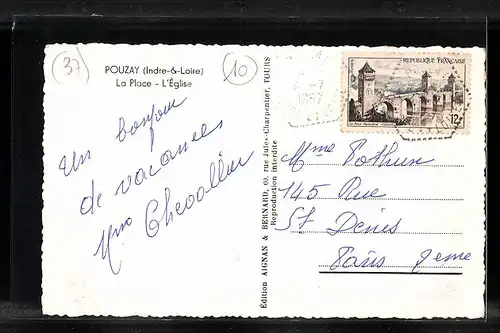 37
10
POUZAY (Indre-&-Loire)
La Place - L'Église
Un bonjour
de vacances
Mme Chevallier
Édition AIGNAN & BERNARD, 60, rue Jules-Charpentier, TOURS
Reproduction interdite
RÉPUBLIQUE FRANÇAISE
12F
-7
1957
Mme Pothun
145 Rue
St Denis
Paris 2eme